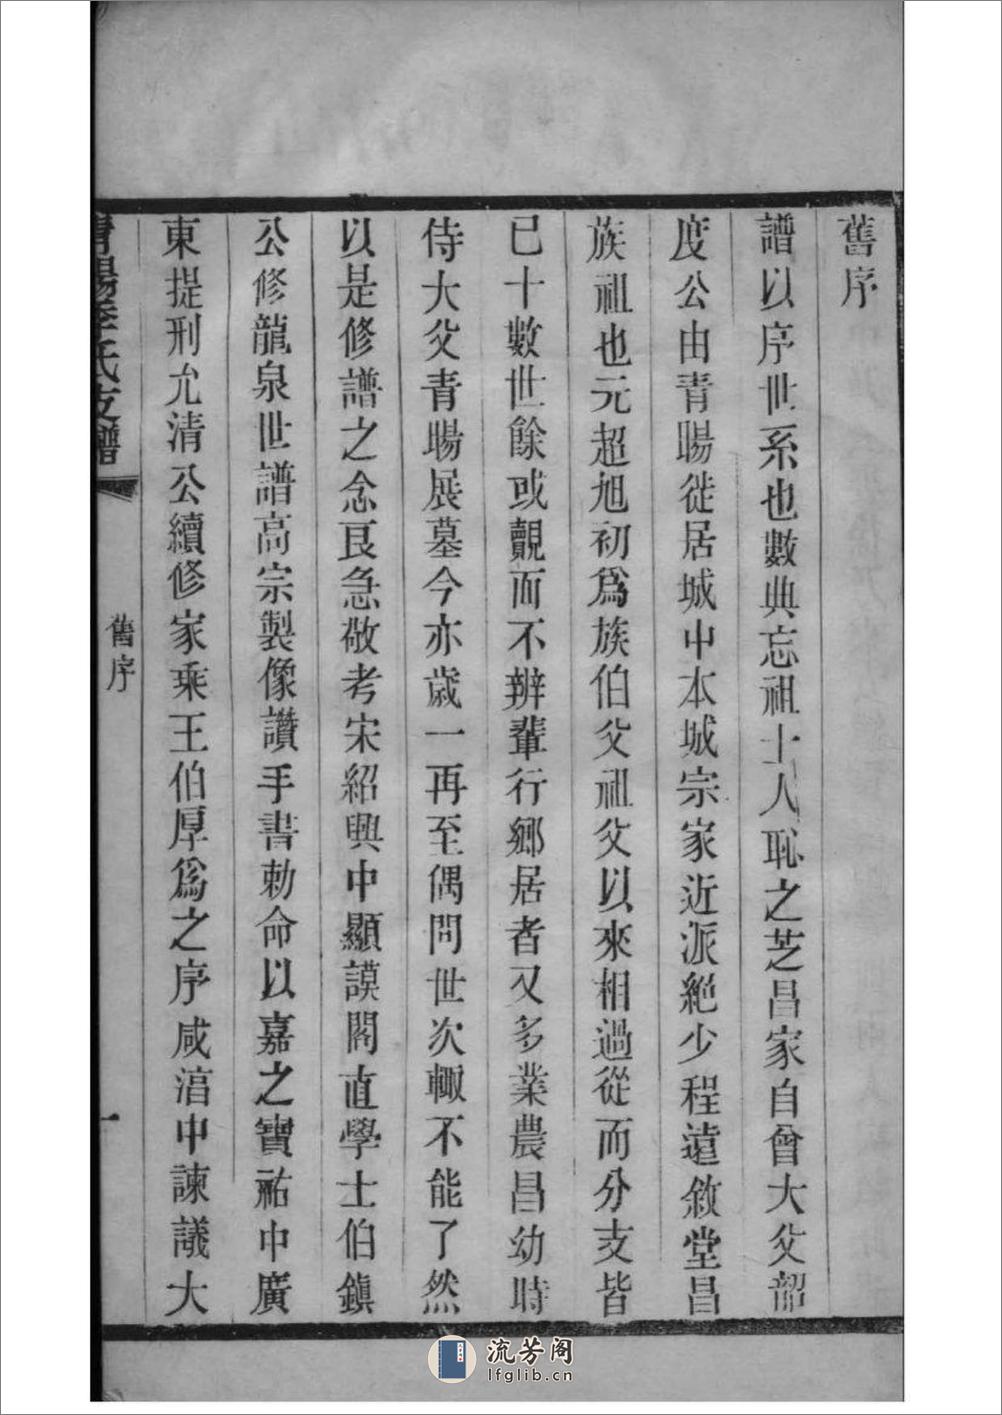 舊序
譜以序世系也數典忘祖士人恥之芝昌家自曾大父韶
度公由青暘徙居城中本城宗家近派絕少程遠敘堂昌
族祖也元超旭初爲族伯父祖父以來相過從而分支皆
已十數世餘或覿面不辨輩行鄉居者又多業農昌幼時
侍大父青暘展墓今亦歲一再至偶問世次輙不能了然
以是修譜之念良急敬考宋紹興中顯謨閣直學士伯鎭
公修龍泉世譜高宗製像讚手書勅命以嘉之寶祐中廣
東提刑允清公續修家乘王伯厚爲之序咸淳中諫議大
青暘季氏支譜
舊序
一
流芳阁
lfglib.cn